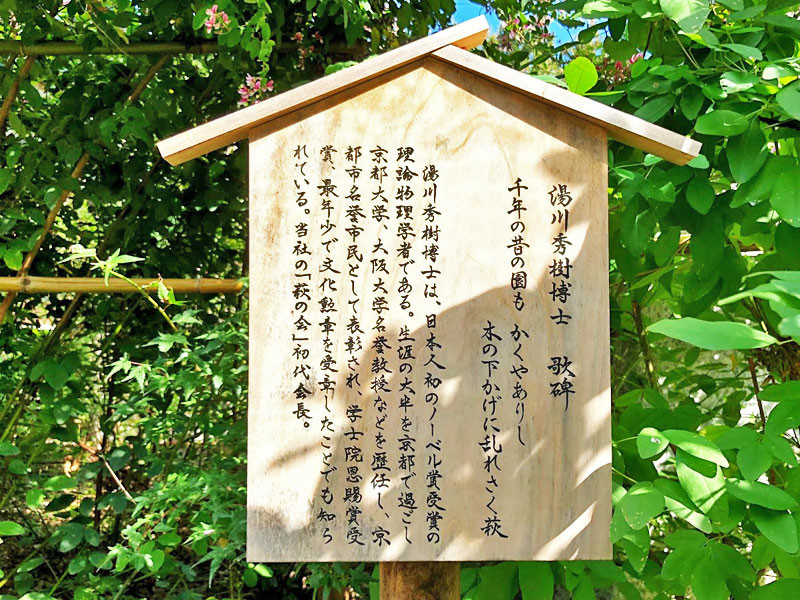 湯川秀樹博士 歌碑
千年の昔の園も かくやありし
木の下かげに乱れさく萩
湯川秀樹博士は、日本人初のノーベル賞受賞の
理論物理学者である。生涯の大半を京都で過ごし
京都大学、大阪大学名誉教授などを歴任し、京
都市名誉市民として表彰され、学士院恩賜賞受
賞、最年少で文化勲章を受章したことでも知ら
れている。当社の「萩の会」初代会長。